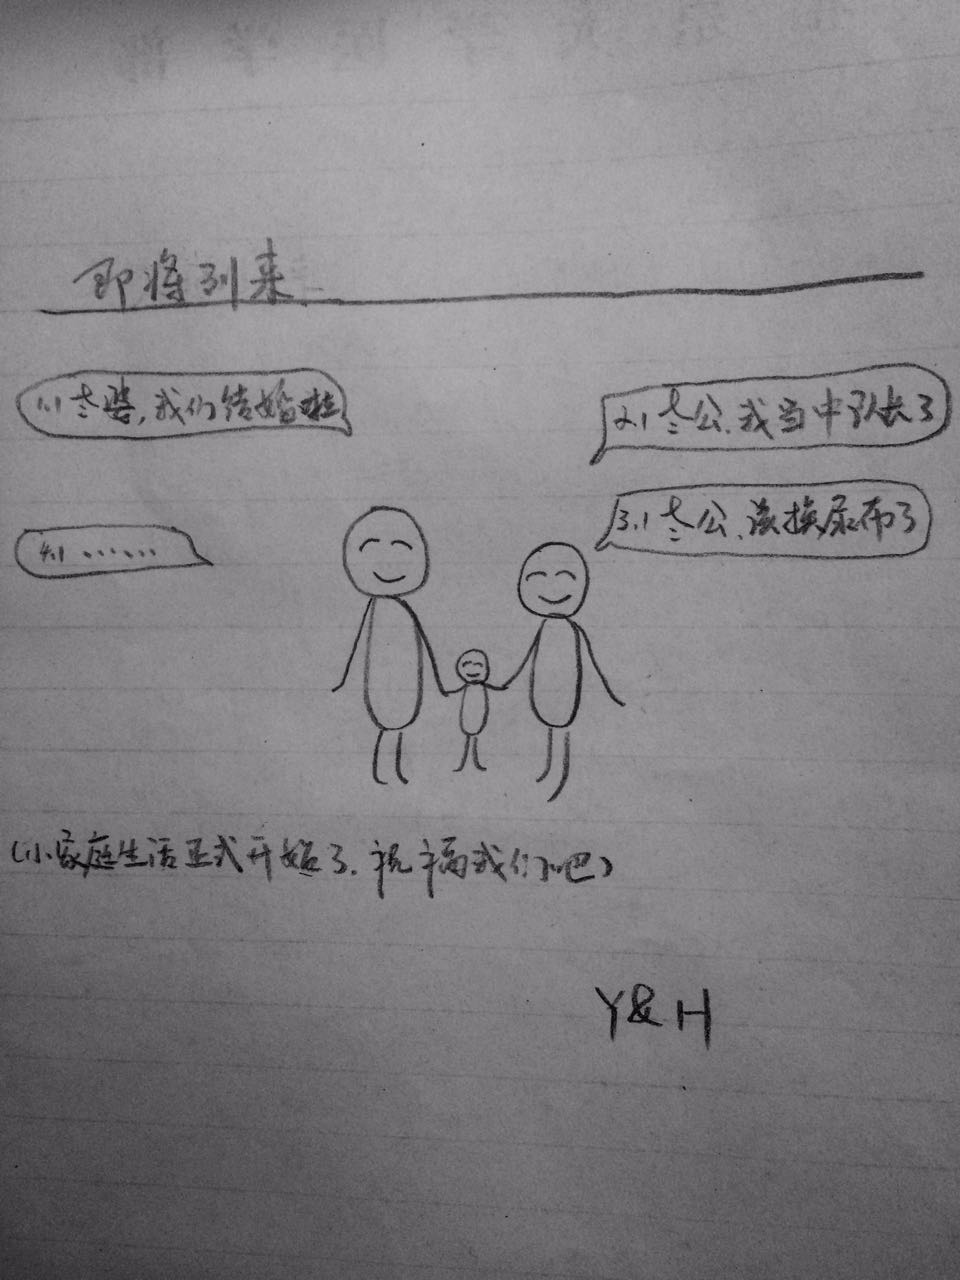 即将到来
1.1 老婆，我们结婚啦
2.1 老公，我当中队长了
3.1 老公，该换尿布了
4.1 ……
（小家庭生活正式开始了，祝福我们吧）
Y&H